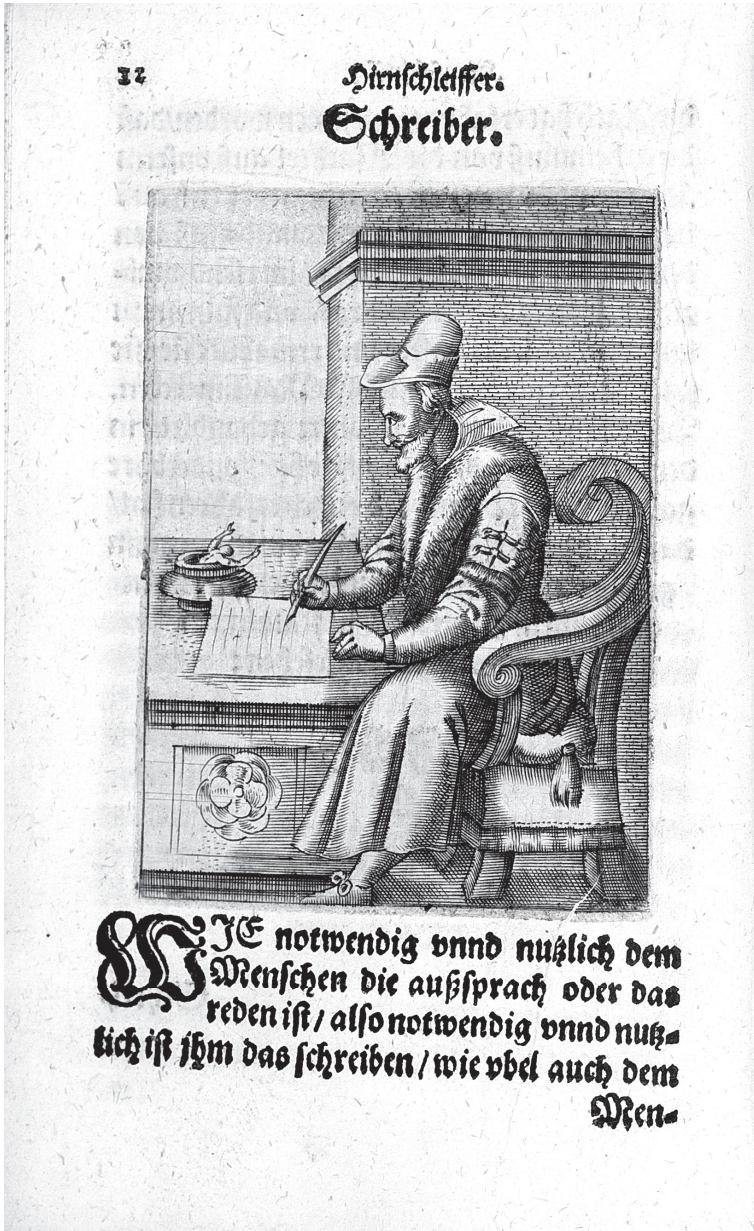 32
Hirnschleiffer.
Schreiber.
WIE notwendig vnnd nutzlich dem
Menschen die außsprach oder das
reden ist / also notwendig vnnd nutz-
lich ist jhm das schreiben / wie vbel auch dem
Men-